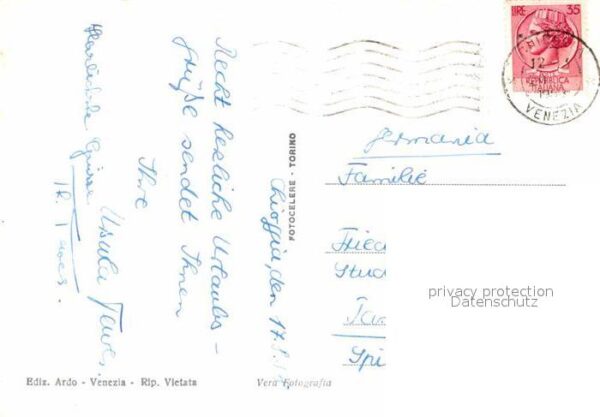 Chioggia, den 17.8.
Recht herzliche Urlaubs-
grüße sendet Ihnen
Ihre
Ursula
Herzliche Grüsse
Germania
Familie
Fried
Stud
Spi
privacy protection
Datenschutz
FOTOCELERE - TORINO
Ediz. Ardo - Venezia - Rip. Vietata
Vera Fotografia
LIRE 35
REPUBBLICA
ITALIANA
VENEZIA